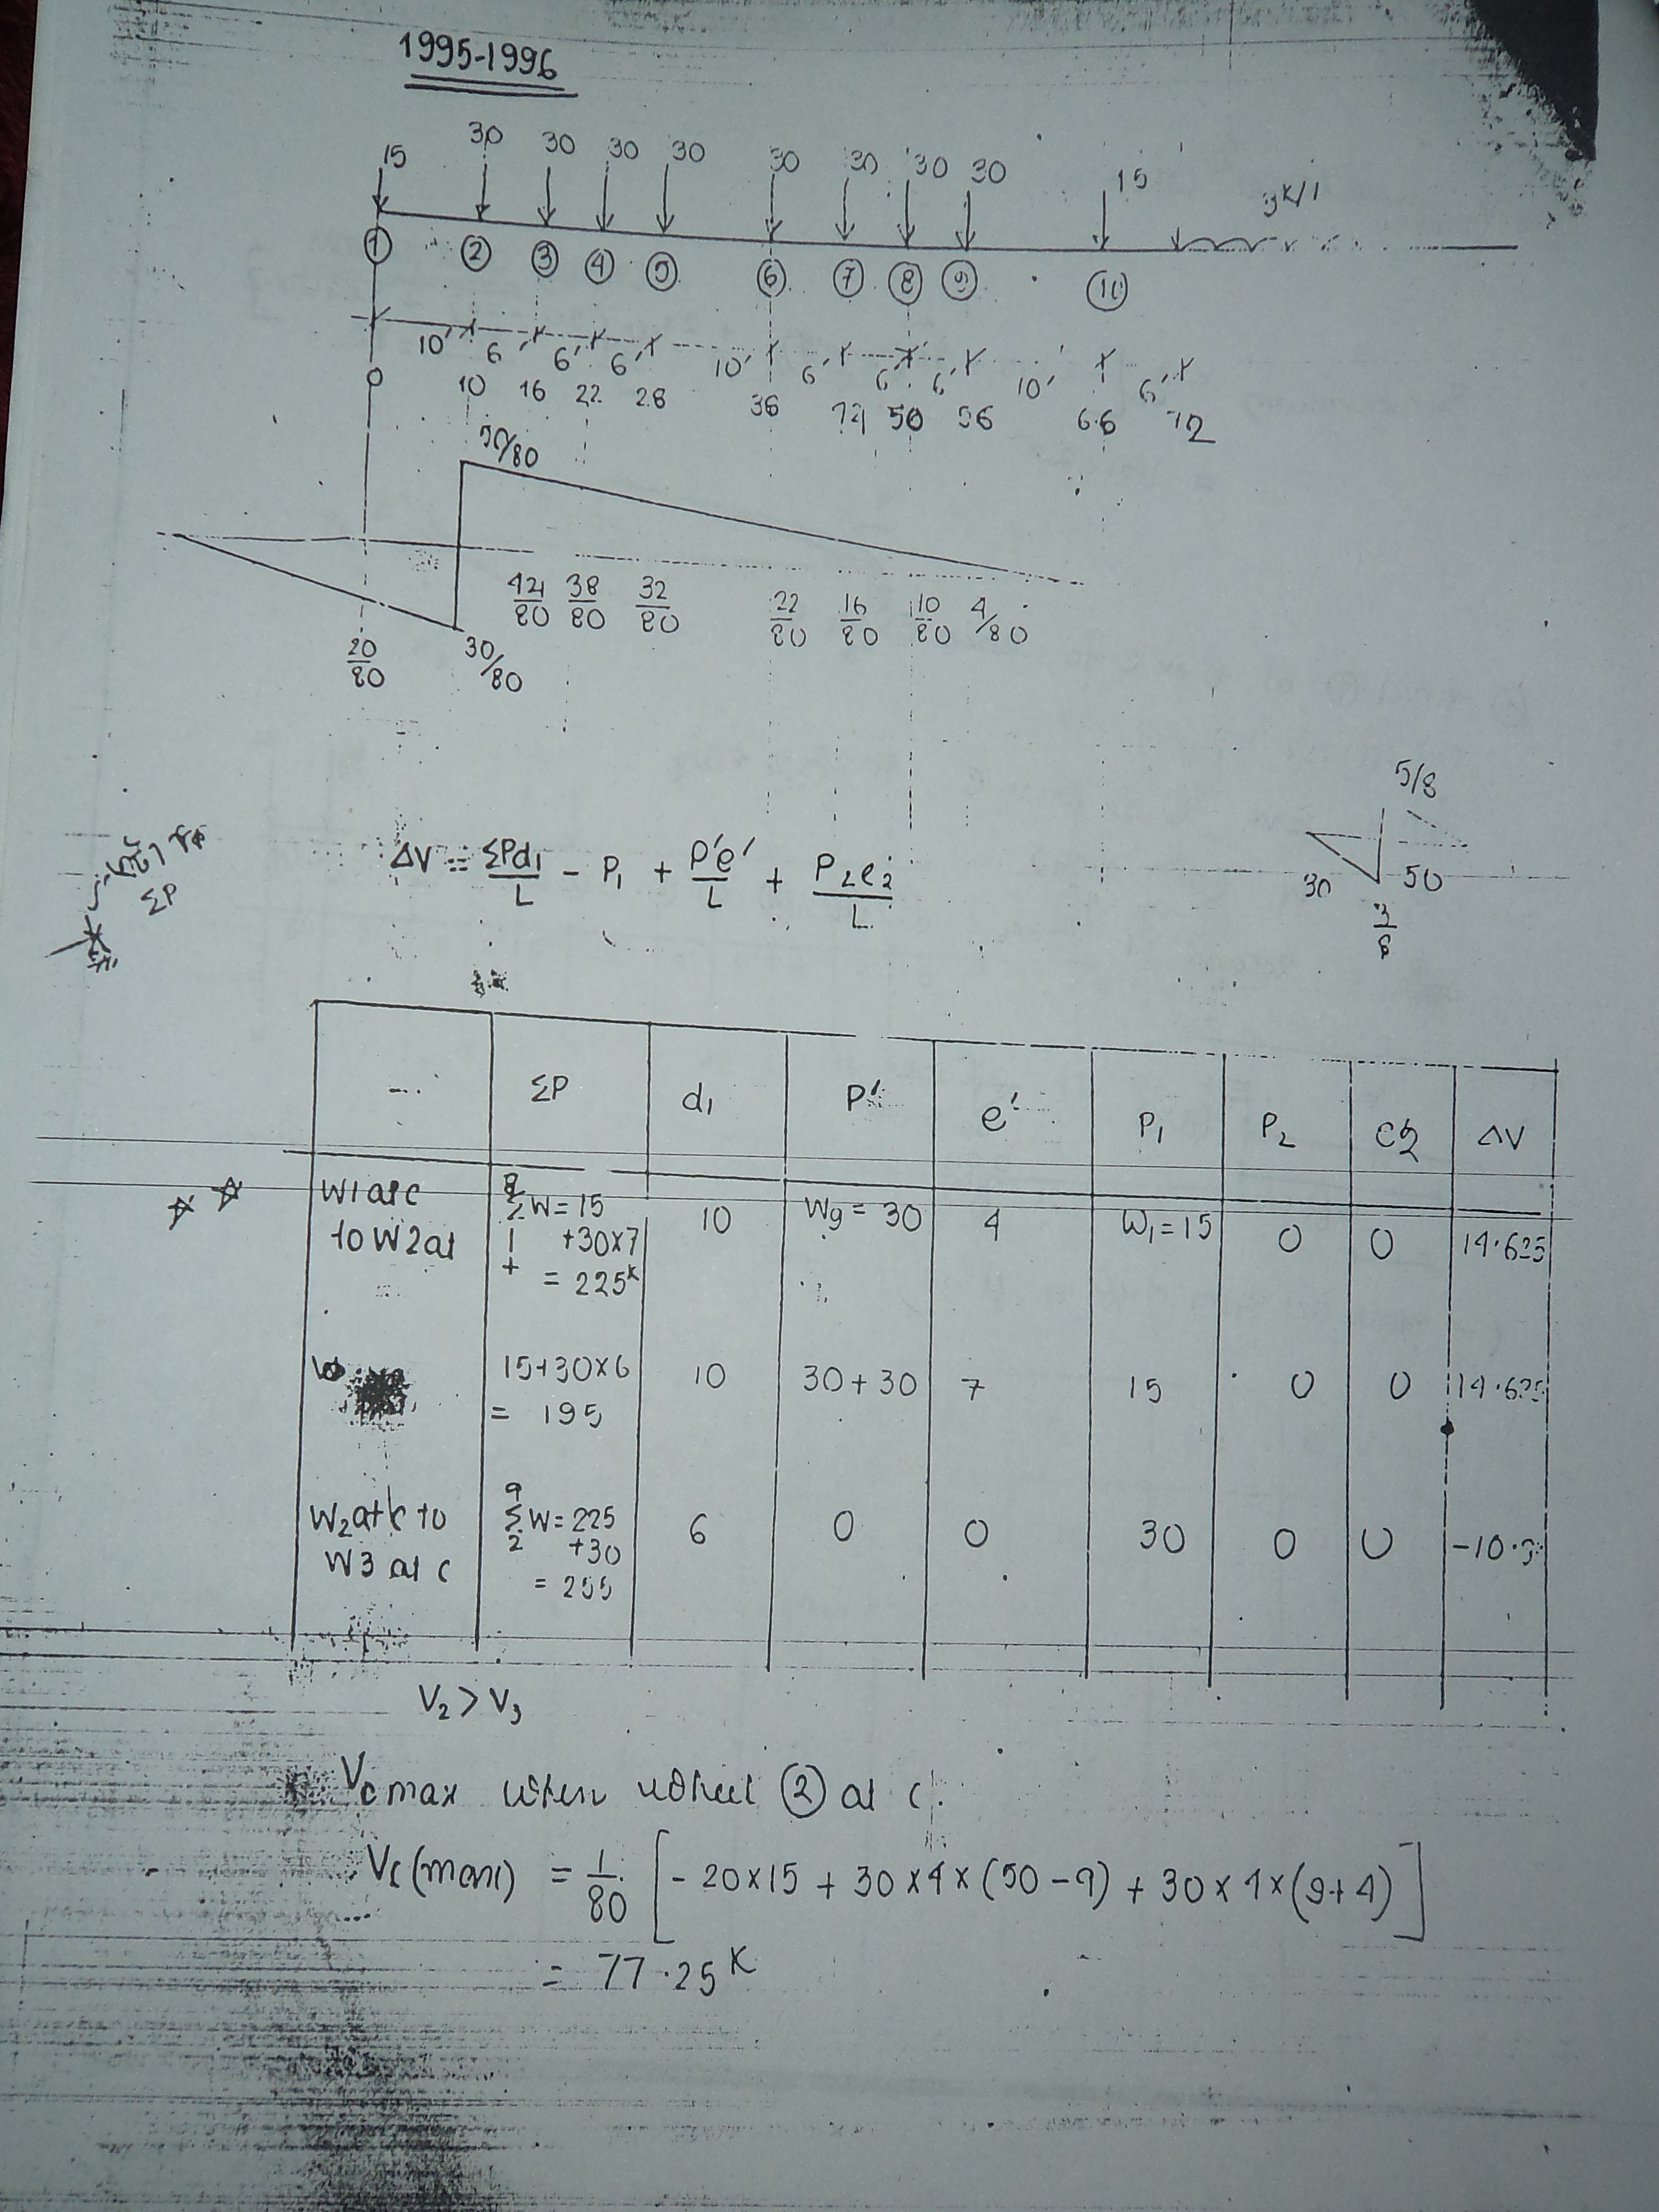 1995-1996
15 30 30 30 30 30 30 30 30 15 3k/1
① ② ③ ④ ⑤ ⑥ ⑦ ⑧ ⑨ ⑩
10' 6' 6' 6' 10' 6' 6' 6' 10' 6'
0 10 16 22 28 38 44 50 56 66 72
50/80
44/80 38/80 32/80 22/80 16/80 10/80 4/80
20/80 30/80
5/8
30 50
3/8
ΔV = ΣPd₁/L - P₁ + P'e'/L + P₂e₂/L
ΣP
ΣP d₁ P' e' P₁ P₂ e₂ ΔV
W1 at c to W2 at 8Σ1 W = 15 + 30×7 = 225k 10 W9 = 30 4 W₁ = 15 0 0 14.625
15+30×6 = 195 10 30+30 7 15 0 0 14.625
W₂ at c to W3 at c 9Σ2 W = 225 +30 = 255 6 0 0 30 0 0 -10.9
V₂ > V₃
Vc max when wheel ② at c.
Vc(max) = 1/80 [- 20×15 + 30×4×(50-9) + 30×4×(9+4)]
= 77.25 K